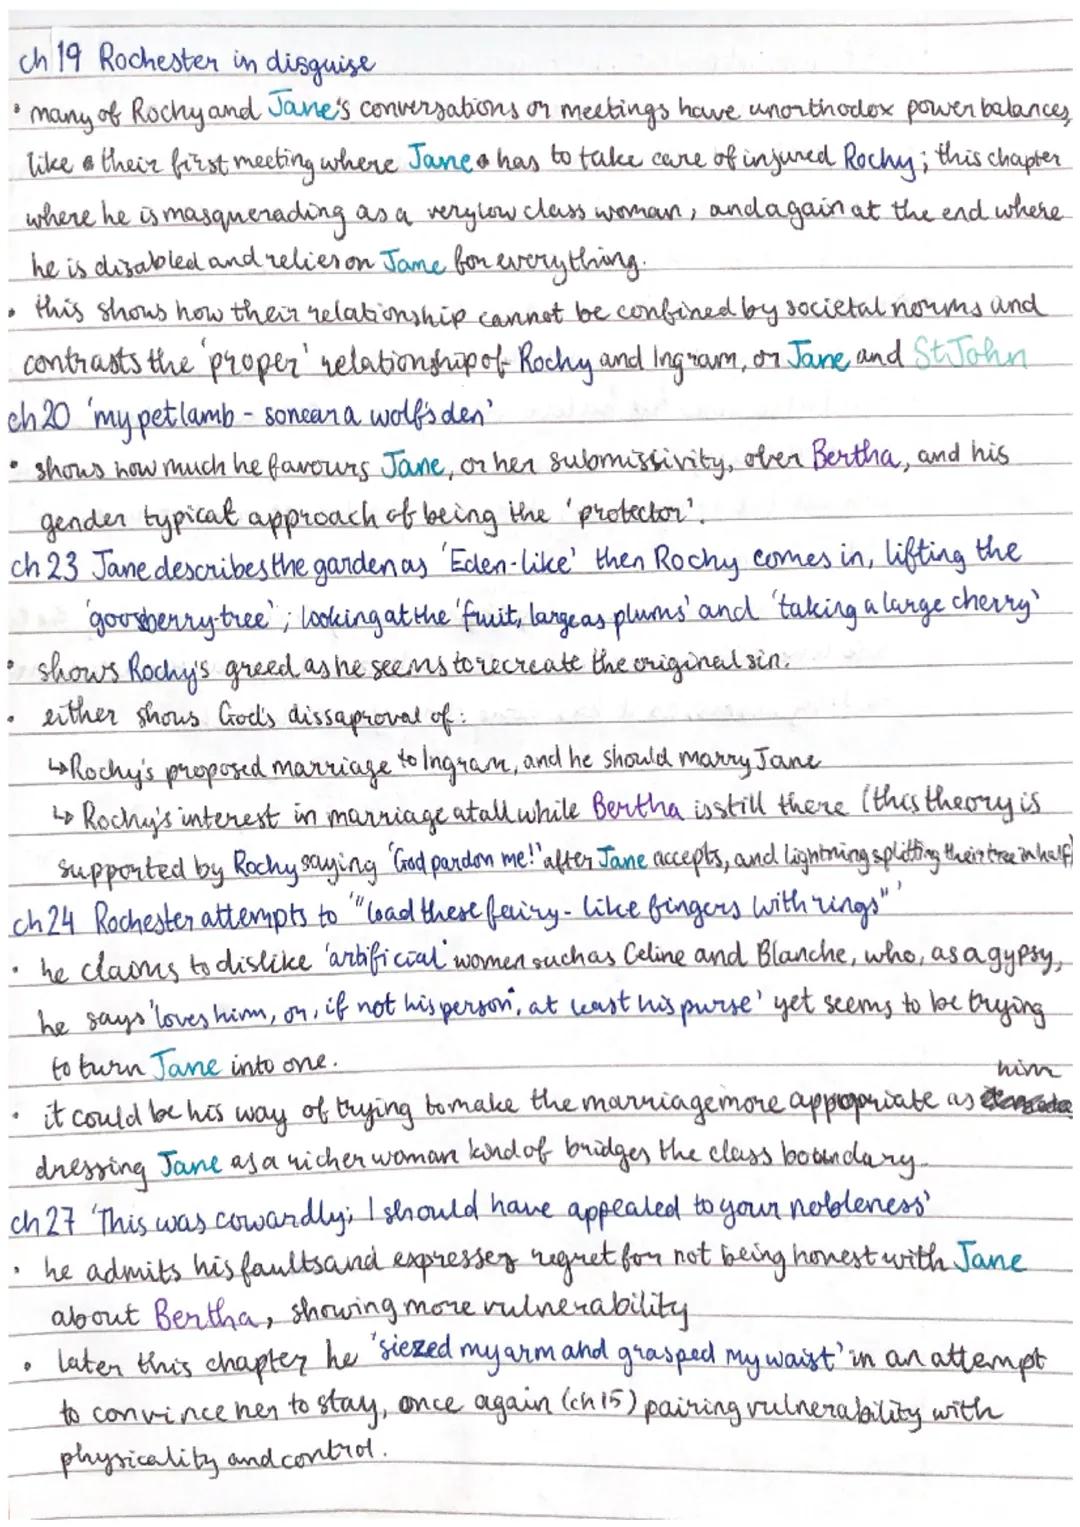 ch 19 Rochester in disguise
• many of Rochy and Jane's conversations or meetings have unorthodox power balances,
like their first meeting where Jane has to take care of injured Rochy; this chapter
where he is masquerading as a very low class woman, and again at the end where
he is disabled and relies on Jane for everything.
• this shows how their relationship cannot be confined by societal norms and
contrasts the 'proper' relationship of Rochy and Ingram, or Jane and St John
ch 20 'my pet lamb - so near a wolf's den'
• shows how much he favours Jane, or her submissivity, over Bertha, and his
gender typical approach of being the 'protector'.
ch 23 Jane describes the garden as 'Eden-like' then Rochy comes in, lifting the
'goosberry-tree'; looking at the 'fruit, large as plums' and 'taking a large cherry'
• shows Rochy's greed as he seems to recreate the original sin.
• either shows God's dissaproval of:
↳ Rochy's proposed marriage to Ingram, and he should marry Jane
↳ Rochy's interest in marriage at all while Bertha is still there (this theory is
supported by Rochy saying 'God pardon me!' after Jane accepts, and lightning splitting their tree in half)
ch 24 Rochester attempts to '"load these fairy-like fingers with rings"'
• he claims to dislike 'artificial' women such as Celine and Blanche, who, as a gypsy,
he says 'loves him, or, if not his person, at least his purse' yet seems to be trying
to turn Jane into one.
• it could be his way of trying to make the marriage more appropriate as him
dressing Jane as a richer woman kind of bridges the class boundary.
ch 27 'This was cowardly; I should have appealed to your nobleness'
• he admits his faults and expresses regret for not being honest with Jane
about Bertha, showing more vulnerability
• later this chapter he 'siezed my arm and grasped my waist' in an attempt
to convince her to stay, once again (ch 15) pairing vulnerability with
physicality and control.